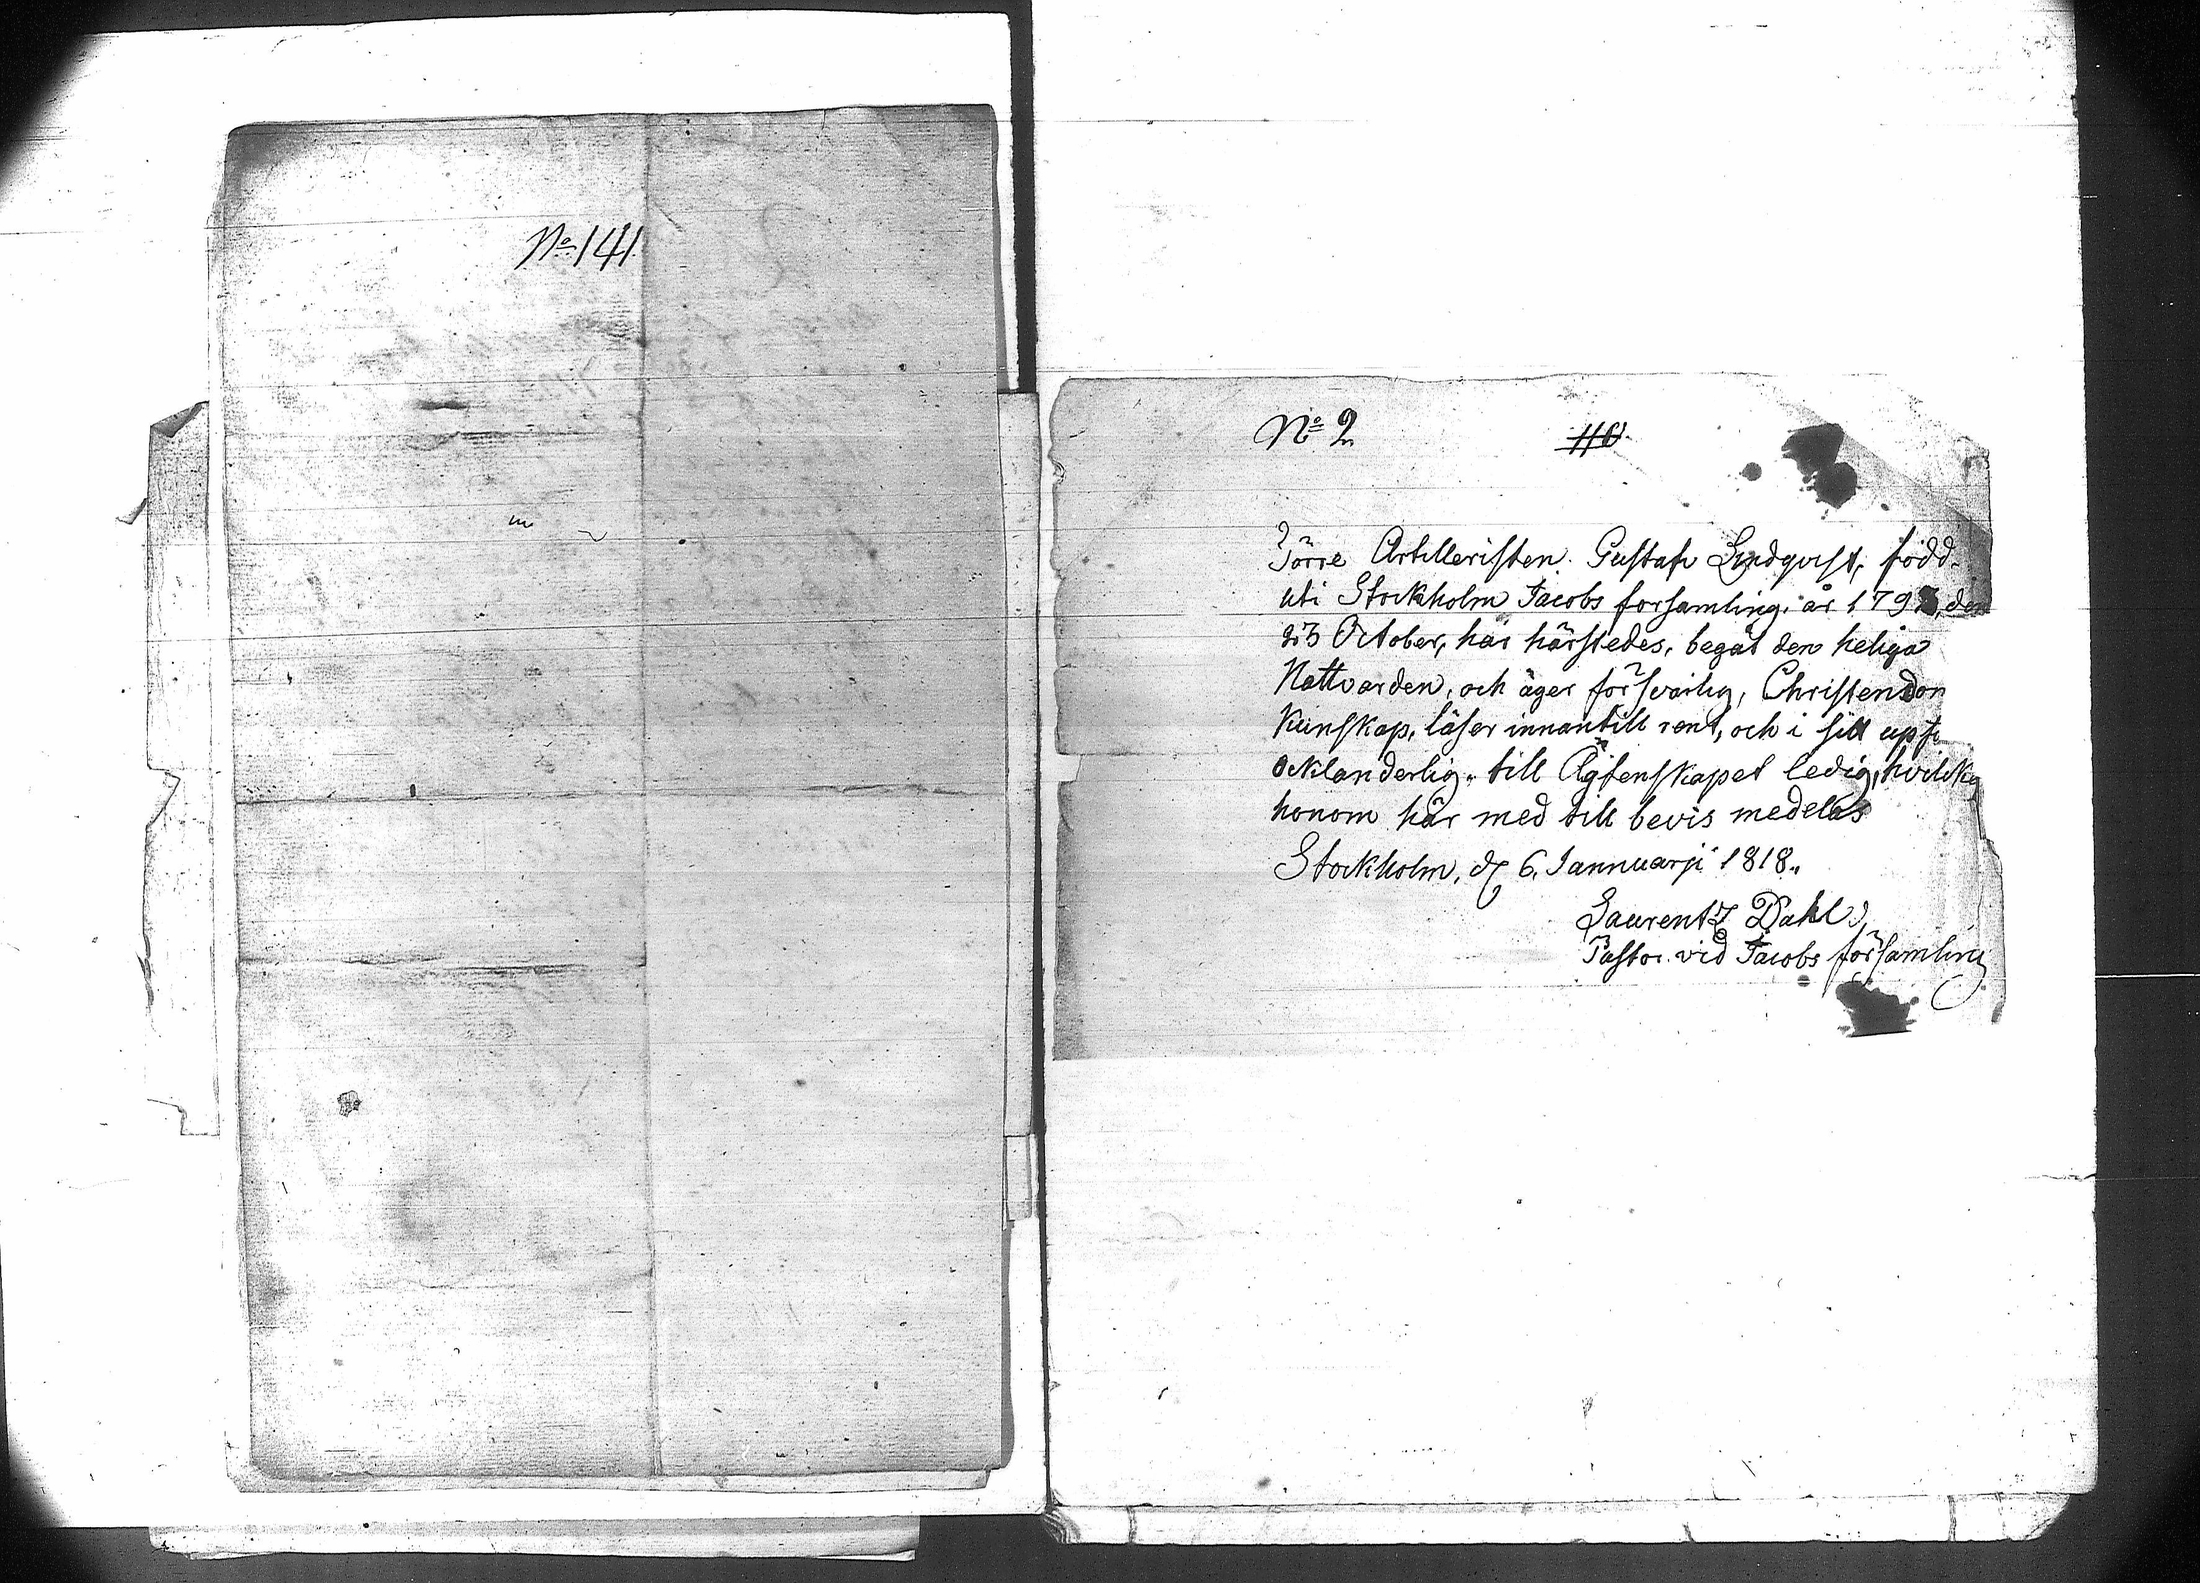 No 141.
No 2
110.
Förre Artilleristen. Gustaf Lindqvist, född.
uti Stockholm Jacobs forsamling. år 179 den
23 October, har härstedes, begåt den heliga
Nattvarden, och äger försvarlig, Christendon
Kunskap, läser innantill rent, och i sitt upfö
ocklanderlig. till Ägtenskapet ledig, hvilke
honom här med till bevis medelas
Stockholm, d. 6. Jannuarji 1818.
Laurentz Dahl
Pastor. vid Jacobs församling